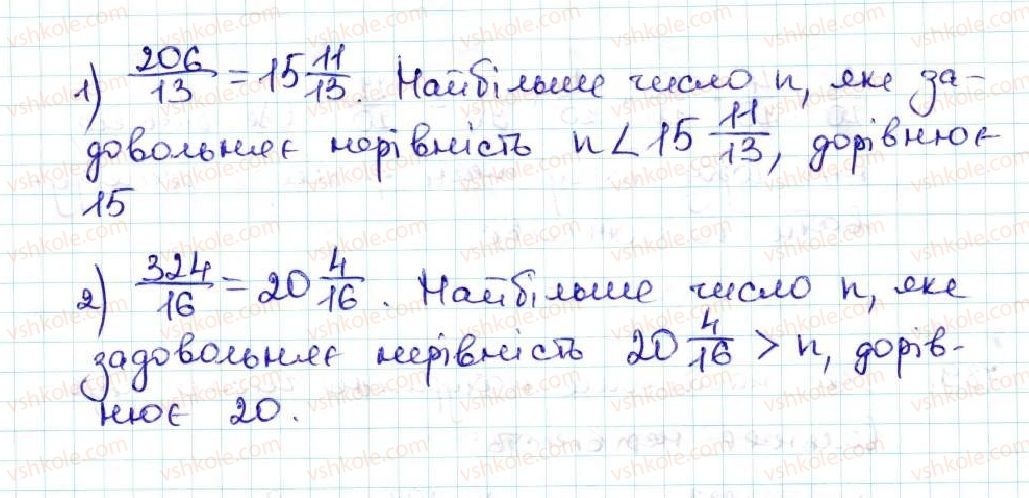 1) 206/13 = 15 11/13. Найбільше число n, яке за-
довольняє нерівність n < 15 11/13, дорівнює
15
2) 324/16 = 20 4/16. Найбільше число n, яке
задовольняє нерівність 20 4/16 > n, дорів-
нює 20.